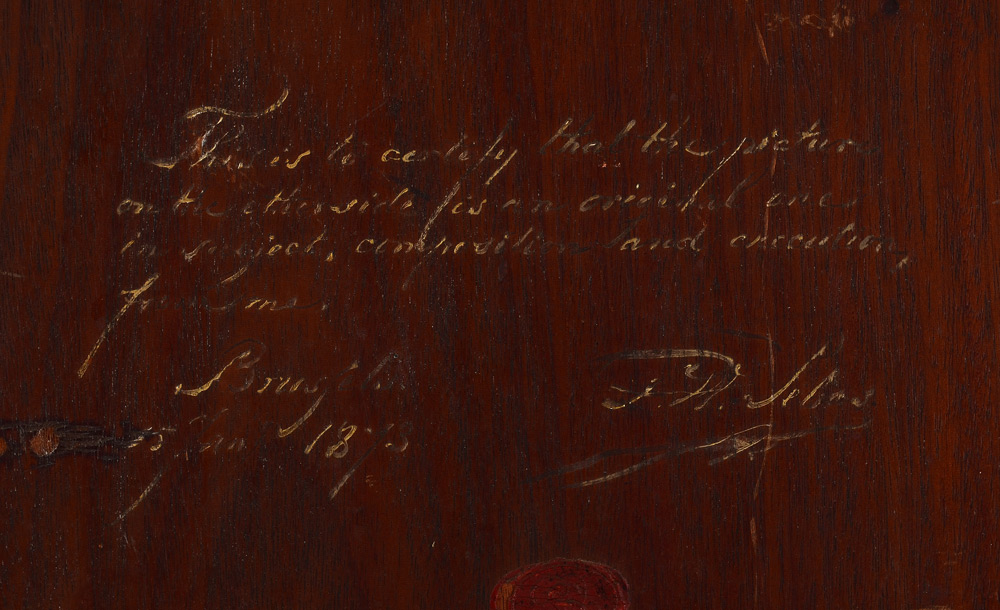 This is to certify that the picture
on the otherside is an original one
in subject, composition and execution,
from me.
Brussels
5 Jan 1873